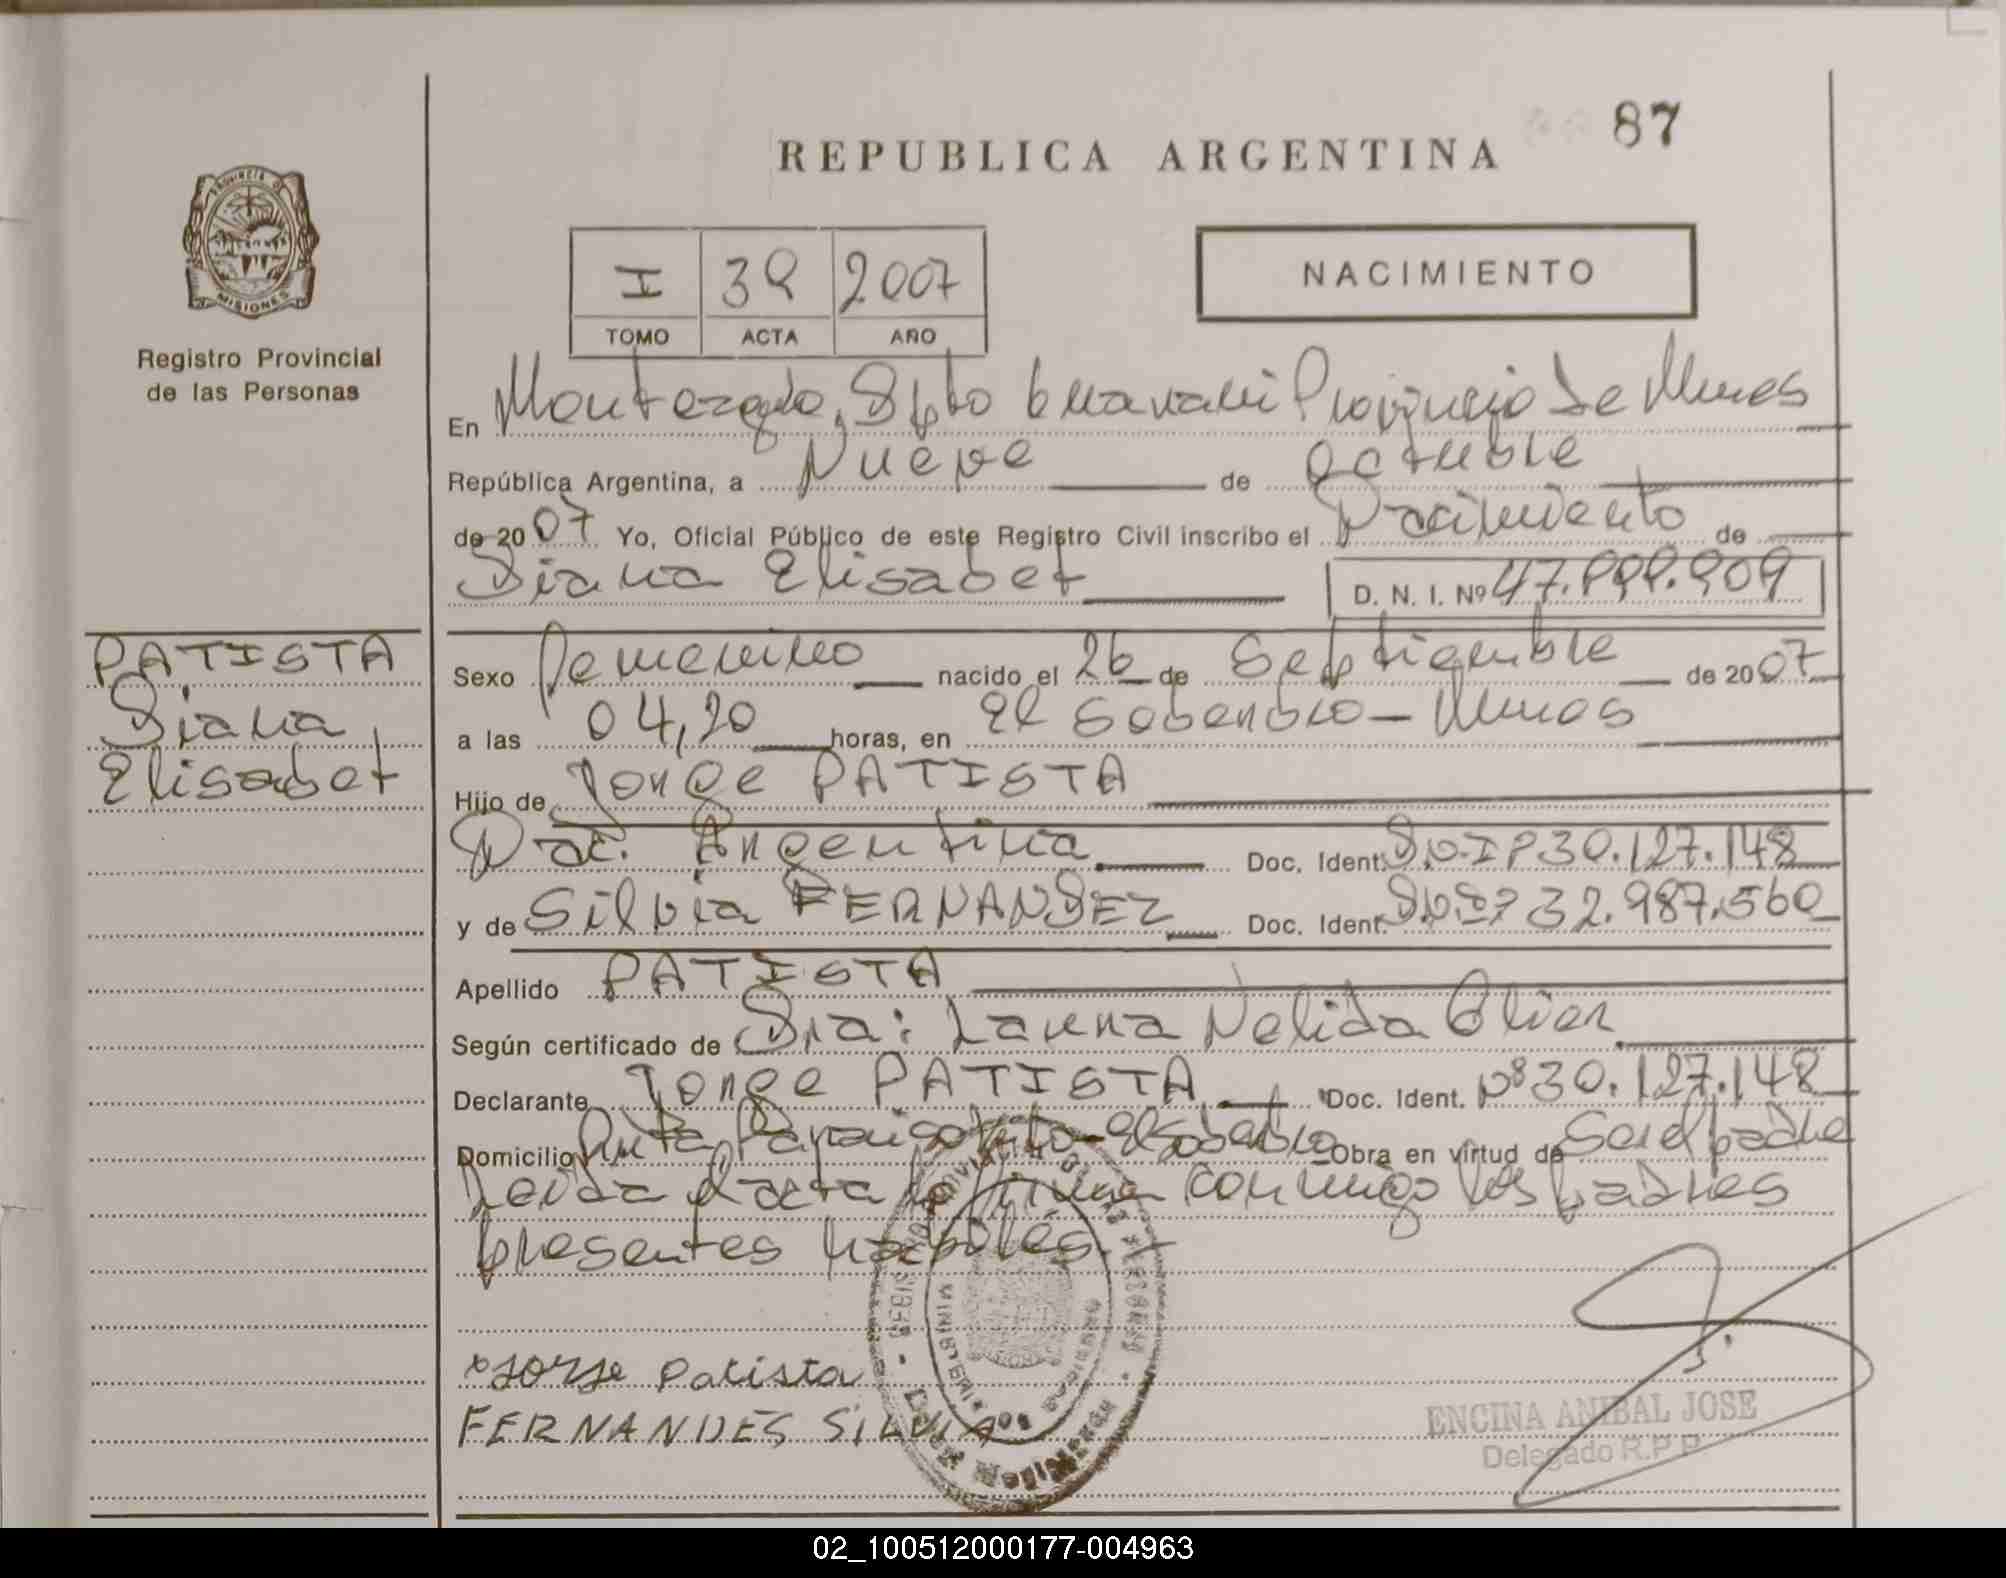 87
REPUBLICA ARGENTINA
PROVINCIA DE
MISIONES
Registro Provincial
de las Personas
I 38 2007
TOMO ACTA AÑO
NACIMIENTO
En Dpto Guarani Provincia de Mnes
República Argentina, a Nueve de Octubre
de 2007 Yo, Oficial Público de este Registro Civil inscribo el Nacimiento de
Diana Elisabet D. N. I. Nº 47.
PATISTA
Diana
Elisabet
Sexo Femenino nacido el 26 de Septiembre de 2007
a las 04,20 horas, en El Soberbio - Mnes
Hijo de Jorge PATISTA
Nac. Argentina Doc. Ident. D.N.I Nº 30.127.148
y de Silvia FERNANDEZ Doc. Ident. D.N.I Nº 32.987.560
Apellido PATISTA
Según certificado de Dra: Laura Nelida Olier
Declarante Jorge PATISTA Doc. Ident. Nº 30.127.148
Domicilio Ruta El Soberbio Obra en virtud de Ser el padre
Leida el acta la firman conmigo los padres
presentes habiles.
Jorge Patista
FERNANDES SILVIA
ENCINA ANIBAL JOSE
Delegado R.P.P.
02_100512000177-004963